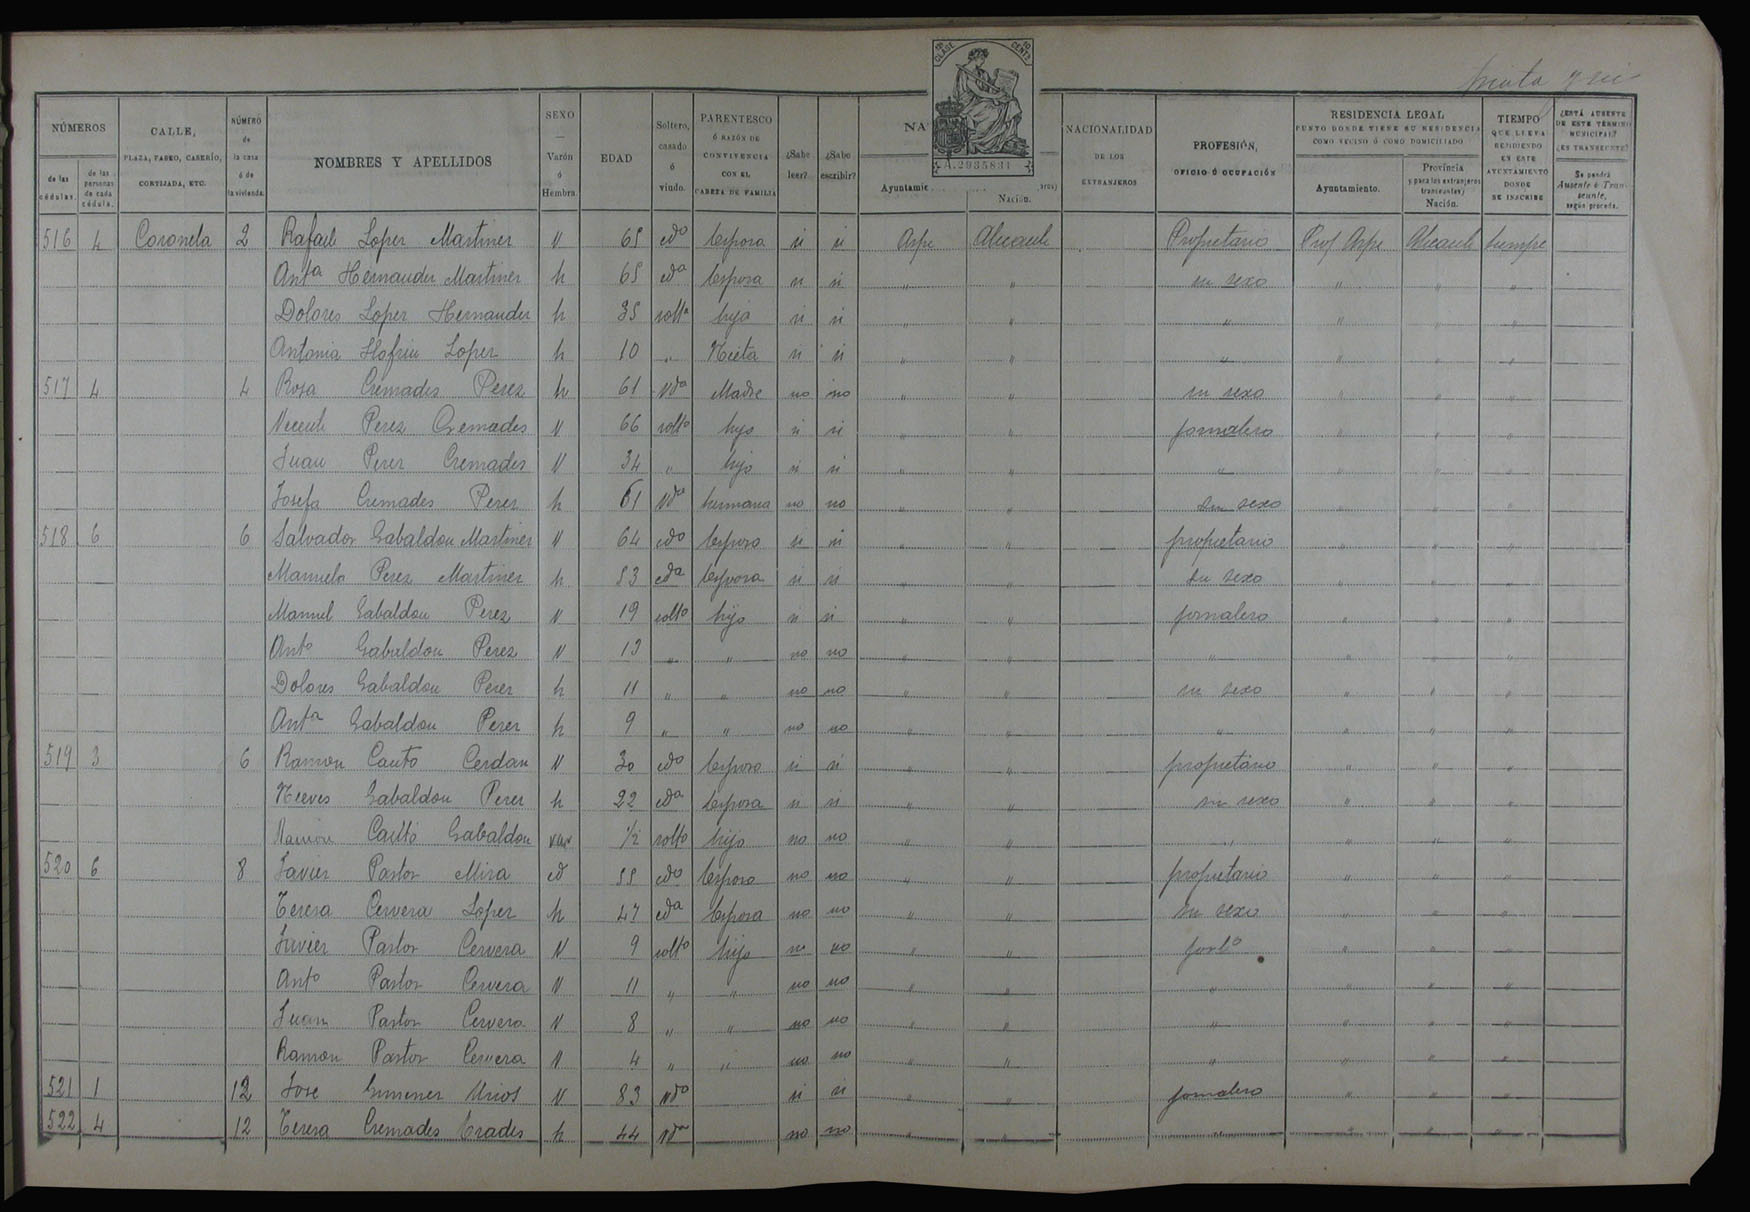 treinta y seis
12ª CLASE 10 CENTS
A.2935831
NÚMEROS
de las cédulas.
de las personas de cada cédula.
CALLE, PLAZA, PASEO, CASERÍO, CORTIJADA, ETC.
NÚMERO de la casa ó de la vivienda.
NOMBRES Y APELLIDOS
SEXO — Varón ó Hembra
EDAD
Soltero, casado ó viudo.
PARENTESCO Ó RAZÓN DE CONVIVENCIA CON EL CABEZA DE FAMILIA
¿Sabe leer?
¿Sabe escribir?
NA
Ayuntamie
Nación.
NACIONALIDAD DE LOS EXTRANJEROS
PROFESIÓN, OFICIO Ó OCUPACIÓN
RESIDENCIA LEGAL
PUNTO DONDE TIENE SU RESIDENCIA COMO VECINO Ó COMO DOMICILIADO
Ayuntamiento.
Provincia y para los extranjeros transeuntes) Nación.
TIEMPO QUE LLEVA RESIDIENDO EN ESTE AYUNTAMIENTO DONDE SE INSCRIBE
¿ESTÁ AUSENTE DE ESTE TÉRMINO MUNICIPAL? ¿ES TRANSEUNTE?
Se pondrá Ausente ó Transeunte, según proceda.
516 4 Coronela 2 Rafael Lopez Martinez V 65 cdo Esposo si si Aspe Alicante Propietario Aspe Alicante siempre
Antª Hernandez Martinez h 65 cdª Esposa si si " " su sexo " " "
Dolores Lopez Hernandez h 35 soltª hija si si " " " " " "
Antonia Lopez h 10 " Nieta si si " " " " " "
517 4 4 Rosa Cremades Perez h 61 vdª Madre no no " " su sexo " " "
Vicente Perez Cremades V 66 solto hijo si si " " jornalero " " "
Juan Perez Cremades V 34 " hijo si si " " " " " "
Josefa Cremades Perez h 61 vdª hermana no no " " su sexo " " "
518 6 6 Salvador Gabaldon Martinez V 64 cdo Esposo si si " " propietario " " "
Manuela Perez Martinez h 53 cdª Esposa si si " " su sexo " " "
Manuel Gabaldon Perez V 19 solto hijo si si " " jornalero " " "
Antº Gabaldon Perez V 13 " " no no " " " " " "
Dolores Gabaldon Perez h 11 " " no no " " su sexo " " "
Antª Gabaldon Perez h 9 " " no no " " " " " "
519 3 6 Ramon Cantó Cerdan V 30 cdo Esposo si si " " propietario " " "
Nieves Gabaldon Perez h 22 cdª Esposa si si " " su sexo " " "
Ramon Cantó Gabaldon var 1/2 solto hijo no no " " " " " "
520 6 8 Javier Pastor Mira 55 cdo Esposo no no " " propietario " " "
Teresa Cervera Lopez h 47 cdª Esposa no no " " su sexo " " "
Javier Pastor Cervera V 9 solto hijo no " " " " "
Antº Pastor Cervera V 11 " " no no " " " " " "
Juan Pastor Cervera V 8 " " no no " " " " " "
Ramon Pastor Cervera V 4 " " no no " " " " " "
521 1 12 Jose Gimenez Urios V 83 vdo si si " " jornalero " " "
522 4 12 Teresa Cremades h 44 vdª no no " " " " " "